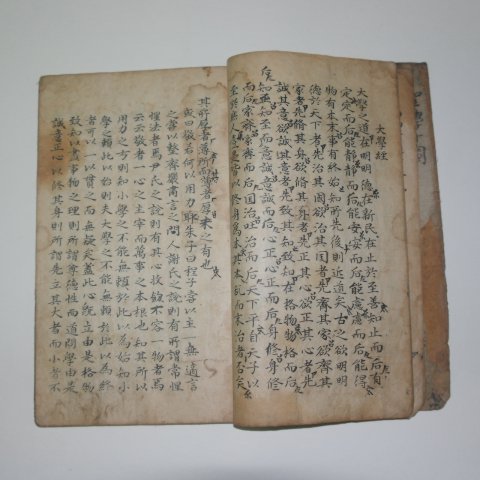 大學經
大學之道在明明德在新民在止於至善知止而后有
定定而后能靜靜而后能安安而后能慮慮而后能得
物有本末事有終始知所先後則近道矣古之欲明明
德於天下者先治其國欲治其國者先齊其家欲齊其
家者先修其身欲修其身者先正其心欲正其心者先
誠其意欲誠其意者先致其知致知在格物物格而后
知至知至而后意誠意誠而后心正心正而后身修身修
而后家齊家齊而后國治國治而后天下平自天子以
至於庶人壹是皆以修身爲本其本亂而末治者否矣
其所厚者薄所薄者厚未之有也
或曰敬若何以用力耶朱子曰程子嘗以主一無適言
之嘗以整齊嚴肅言之門人謝氏之說則有所謂常惺
惺法者焉尹氏之說則有其心收斂不容一物者焉
云云敬者一心之主宰而萬事之本根也知其所以
用力之方則知小學之不能無賴於此以爲始知小
學之賴此以始則夫大學之不能無賴於此以爲終
者可以一以貫之而無疑矣蓋此心旣立由是格物
致知以盡事物之理則所謂尊德性而道問學由是
誠意正心以修其身則所謂先立其大者而小者不